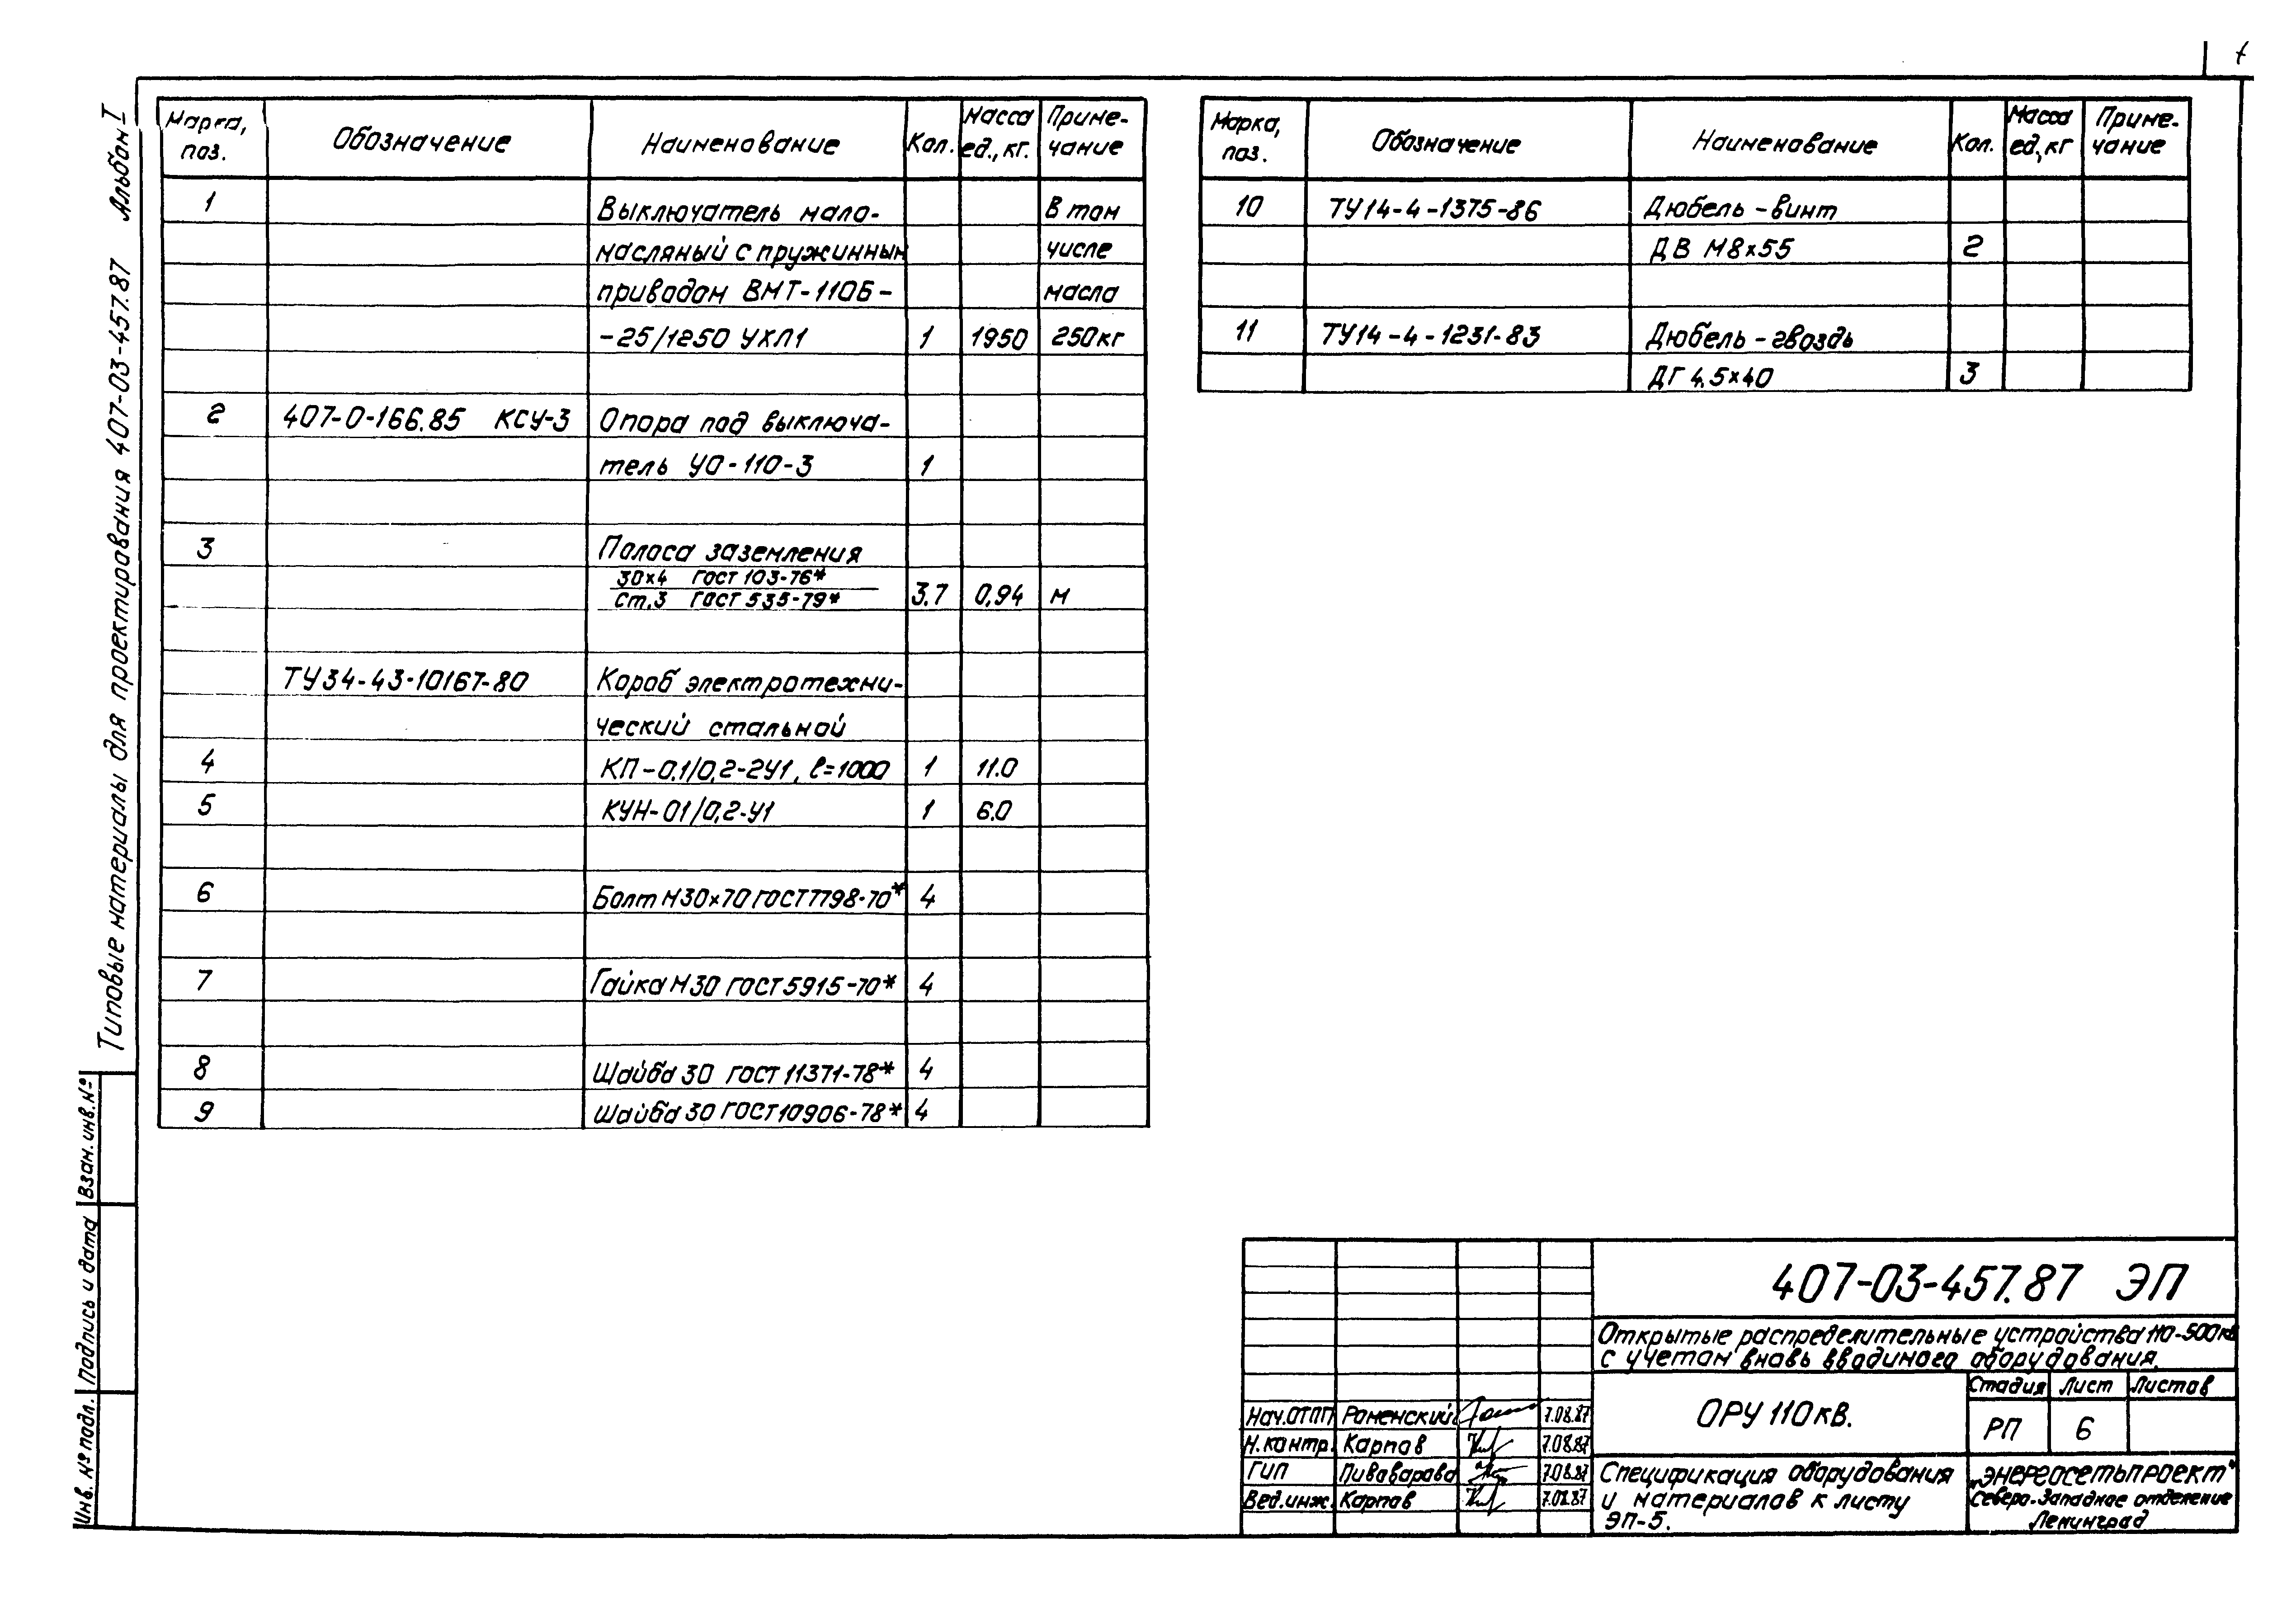 Типовые материалы для проектирования 407-03-457.87 Альбом I
Марка, поз. Обозначение Наименование Кол. Масса ед., кг. Приме-чание
1 Выключатель мало- В том
масляный с пружинным числе
приводом ВМТ-110Б- масла
-25/1250 УХЛ1 1 1950 250кг
2 407-0-166.85 КСУ-3 Опора под выключа-
тель УО-110-3 1
3 Полоса заземления
30х4 ГОСТ 103-76*
Ст.3 ГОСТ 535-79* 3,7 0,94 м
ТУ34-43-10167-80 Короб электротехни-
ческий стальной
4 КП-0,1/0,2-2У1, ℓ=1000 1 11.0
5 КУН-01/0,2-У1 1 6.0
6 Болт М30х70 ГОСТ7798-70* 4
7 Гайка М30 ГОСТ5915-70* 4
8 Шайба 30 ГОСТ 11371-78* 4
9 Шайба 30 ГОСТ10906-78* 4
Марка, поз. Обозначение Наименование Кол. Масса ед,кг Приме-чание
10 ТУ14-4-1375-86 Дюбель-винт
ДВ М8х55 2
11 ТУ14-4-1231-83 Дюбель-гвоздь
ДГ 4,5х40 3
Взам. инв. №
Подпись и дата
Инв. № подл.
407-03-457.87 ЭП
Открытые распределительные устройства 110-500кВ
с учетом вновь вводимого оборудования.
ОРУ 110кВ.
Стадия Лист Листов
РП 6
Нач.ОТПП Роменский 7.08.87
Н.контр. Карпов 7.08.87
ГИП Пивоварова 7.08.87
Вед.инж. Карпов 7.08.87
Спецификация оборудования
и материалов к листу
ЭП-5.
„Энергосетьпроект"
Северо-Западное отделение
Ленинград